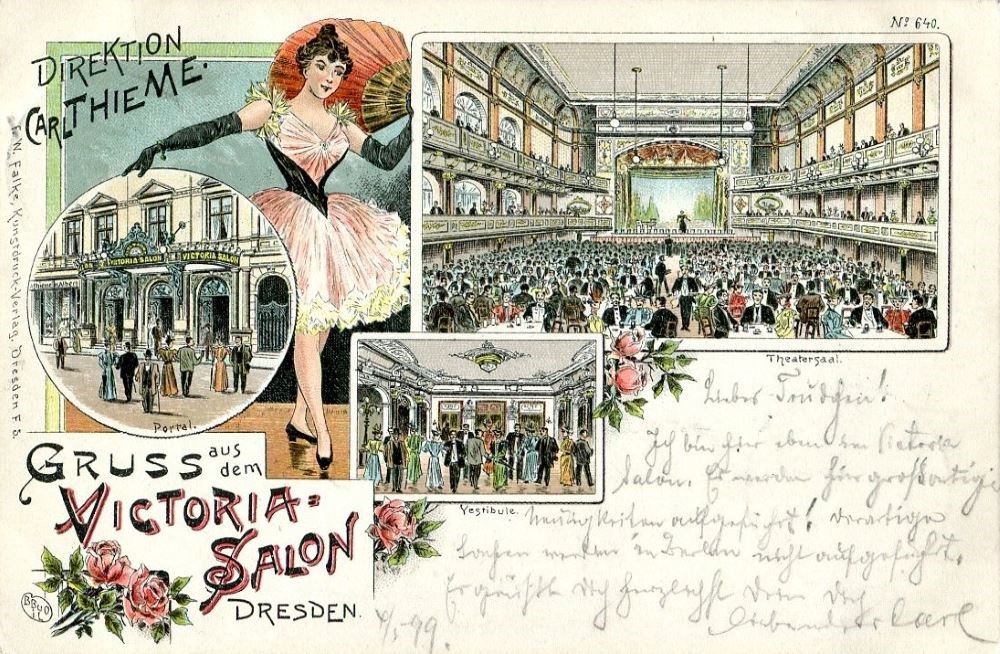 Nº 640.
DIREKTION
CARL THIEME.
F.W. Falke, Kunstdruck-Verlag, Dresden F 5.
VICTORIA SALON VICTORIA SALON
Portal.
Theatersaal.
Vestibule.
GRUSS aus dem
VICTORIA=
SALON
DRESDEN.
Liebes Trudchen!
Ich bin hier eben im Victoria
Salon. Es werden hier großartige
Neuigkeiten aufgeführt! derartige
Sachen werden in Berlin nicht aufgeführt.
Es grüßt Dich herzlichst Dein Dich
liebender Carl
99.